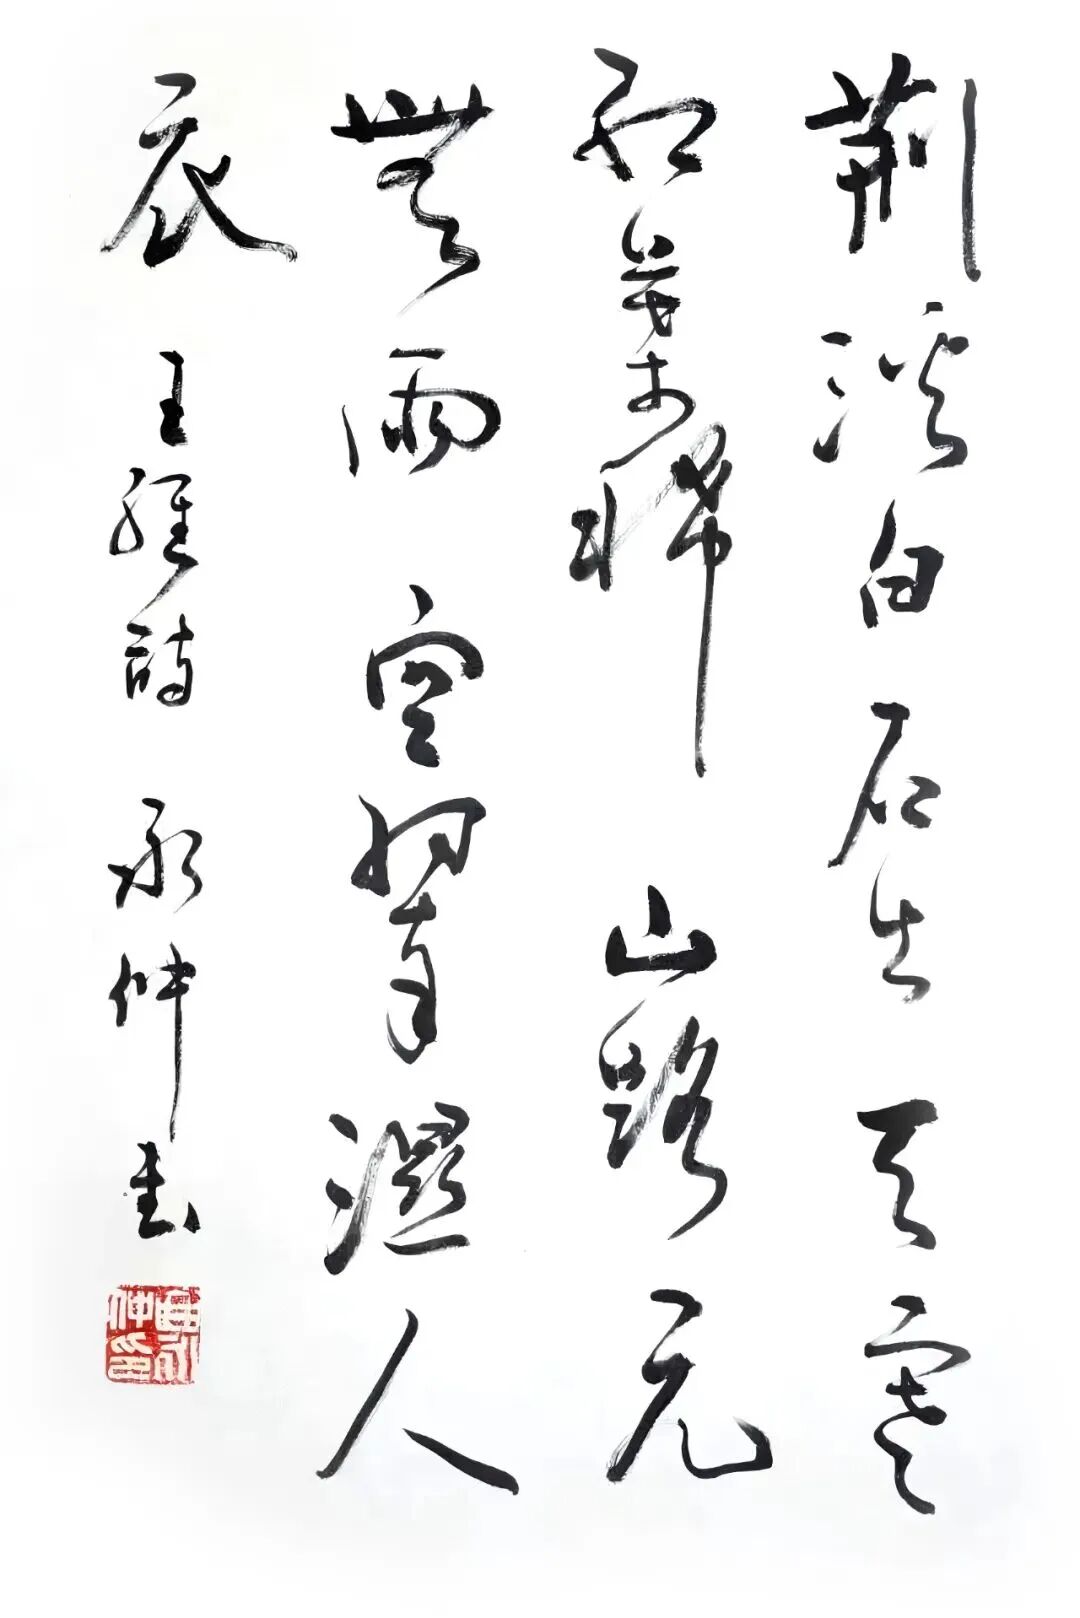 荆溪白石出天寒
红葉稀山路元
無雨空翠濕人
衣 王維詩 永仲書
永仲印